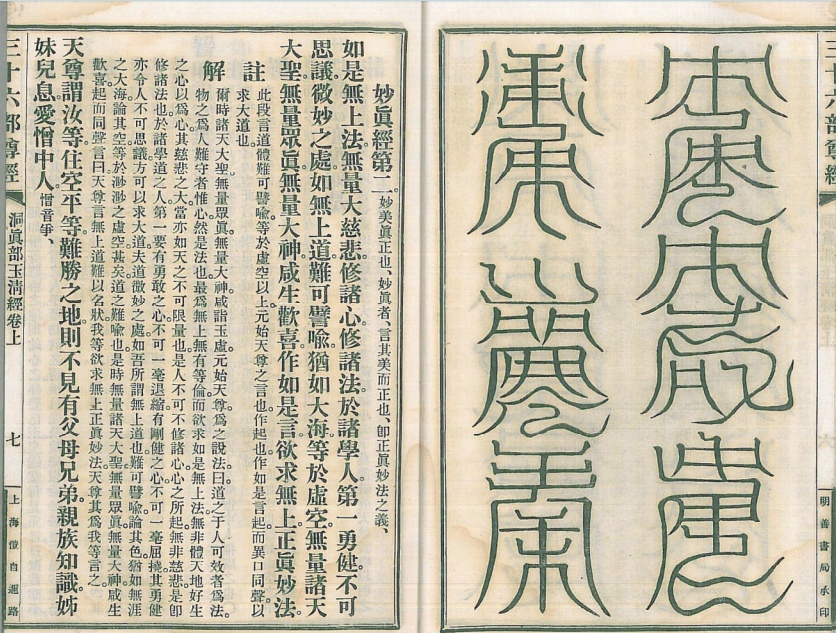 三十六部尊經
明善書局承印
妙眞經第二 妙美眞正也、妙眞者、言其美而正也、卽正眞妙法之義、
如是無上法無量大慈悲修諸心修諸法於諸學人第一勇健不可
思議微妙之處如無上道難可譬喩猶如大海等於虛空無量諸天
大聖無量眾眞無量大神咸生歡喜作如是言欲求無上正眞妙法。
註 此段言道體難可譬喩等於虛空以上元始天尊之言也作起也作如是言起而異口同聲以
求大道也
解 爾時諸天大聖無量眾眞無量大神咸詣玉虛元始天尊爲之說法曰道之于人可效者爲法。
物之爲人難守者惟心然是法也最爲無上無有等倫而欲求如是無上法無非體天地好生
之心以爲心其慈悲之大當亦如天之不可限量也是人不可不修諸心心之所起無非慈悲是卽
修諸法也於諸學道之人第一要有勇敢之心不可一毫退縮有剛健之心不可一毫屈撓其勇健
亦令人不可思議方可以求大道夫道微妙之處如吾所謂無上道也難可譬喩論其色猶如無涯
之大海論其空等於渺渺之虛空甚矣道之難喩也是時無量諸天大聖無量眾眞無量大神咸生
歡喜起而同聲言曰天尊言無上道難以名狀我等欲求無上正眞妙法天尊其爲我等言之。
天尊謂汝等住空平等難勝之地則不見有父母兄弟親族知識姊
妹兒息愛憎中人 憎音爭、
三十六部尊經
洞眞部玉清經卷上
七
上海自迴路